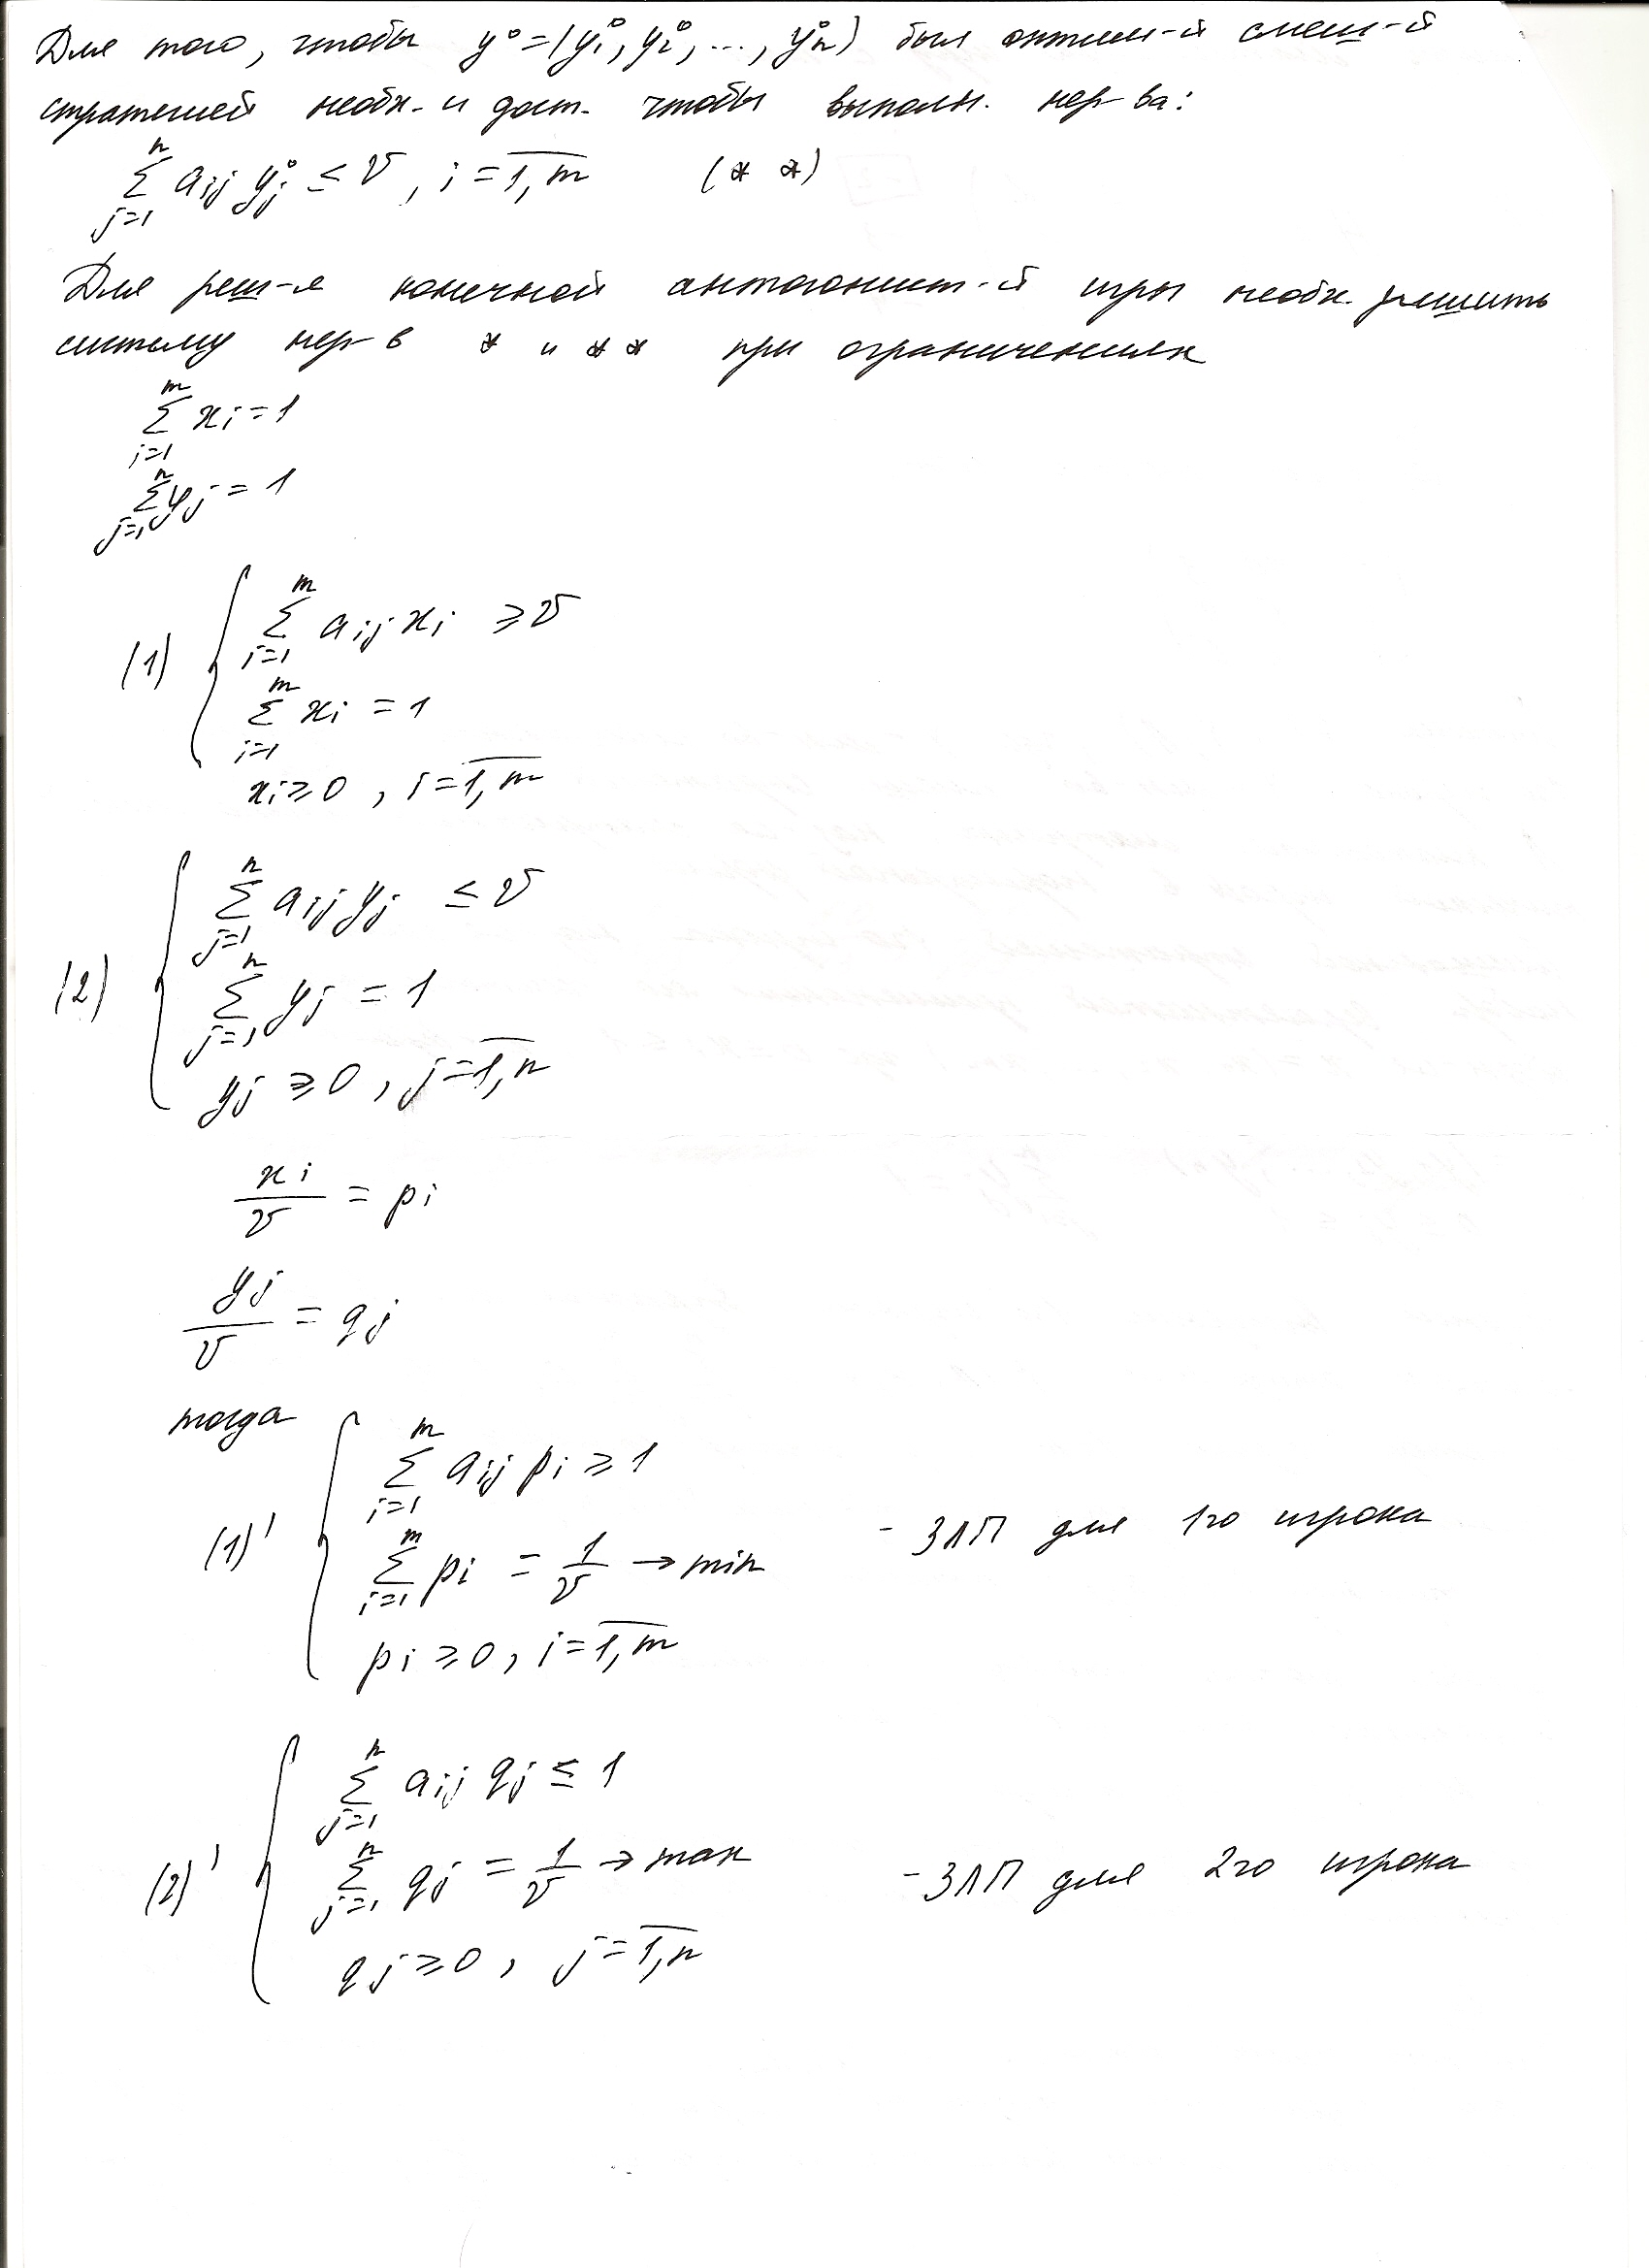 Для того, чтобы y° = (y₁°, y₂°, ..., yₙ°) был оптим-й смеш-й
стратегией необх. и дост. чтобы выполн. нер-ва:
∑_{j=1}^{n} a_{ij} y_j° ≤ v, i = \overline{1,m} (* *)
Для реш-я конечной антагонист-й игры необх. решить
систему нер-в * и * * при ограничениях
∑_{i=1}^{m} x_i = 1
∑_{j=1}^{n} y_j = 1
(1) { ∑_{i=1}^{m} a_{ij} x_i ≥ v
∑_{i=1}^{m} x_i = 1
x_i ≥ 0, i = \overline{1,m}
(2) { ∑_{j=1}^{n} a_{ij} y_j ≤ v
∑_{j=1}^{n} y_j = 1
y_j ≥ 0, j = \overline{1,n}
x_i / v = p_i
y_j / v = q_j
тогда
(1)' { ∑_{i=1}^{m} a_{ij} p_i ≥ 1
∑_{i=1}^{m} p_i = 1/v → min - ЗЛП для 1го игрока
p_i ≥ 0, i = \overline{1,m}
(2)' { ∑_{j=1}^{n} a_{ij} q_j ≤ 1
∑_{j=1}^{n} q_j = 1/v → max - ЗЛП для 2го игрока
q_j ≥ 0, j = \overline{1,n}